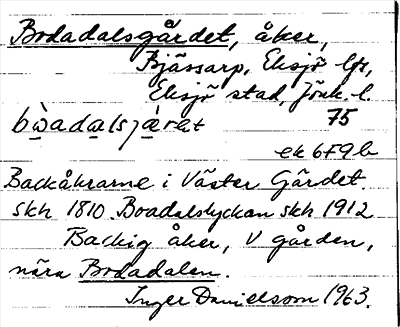 Bodadalsgärdet, åker,
Bjässarp, Eksjö lfs,
Eksjö stad, Jönk. l.
75
ek 6F9b
Backåkrarne i Väster Gärdet
skh 1810. Boadalslyckan skh 1912
Backig åker, V gården,
nära Bodadalen.
Inger Danielsson 1963.